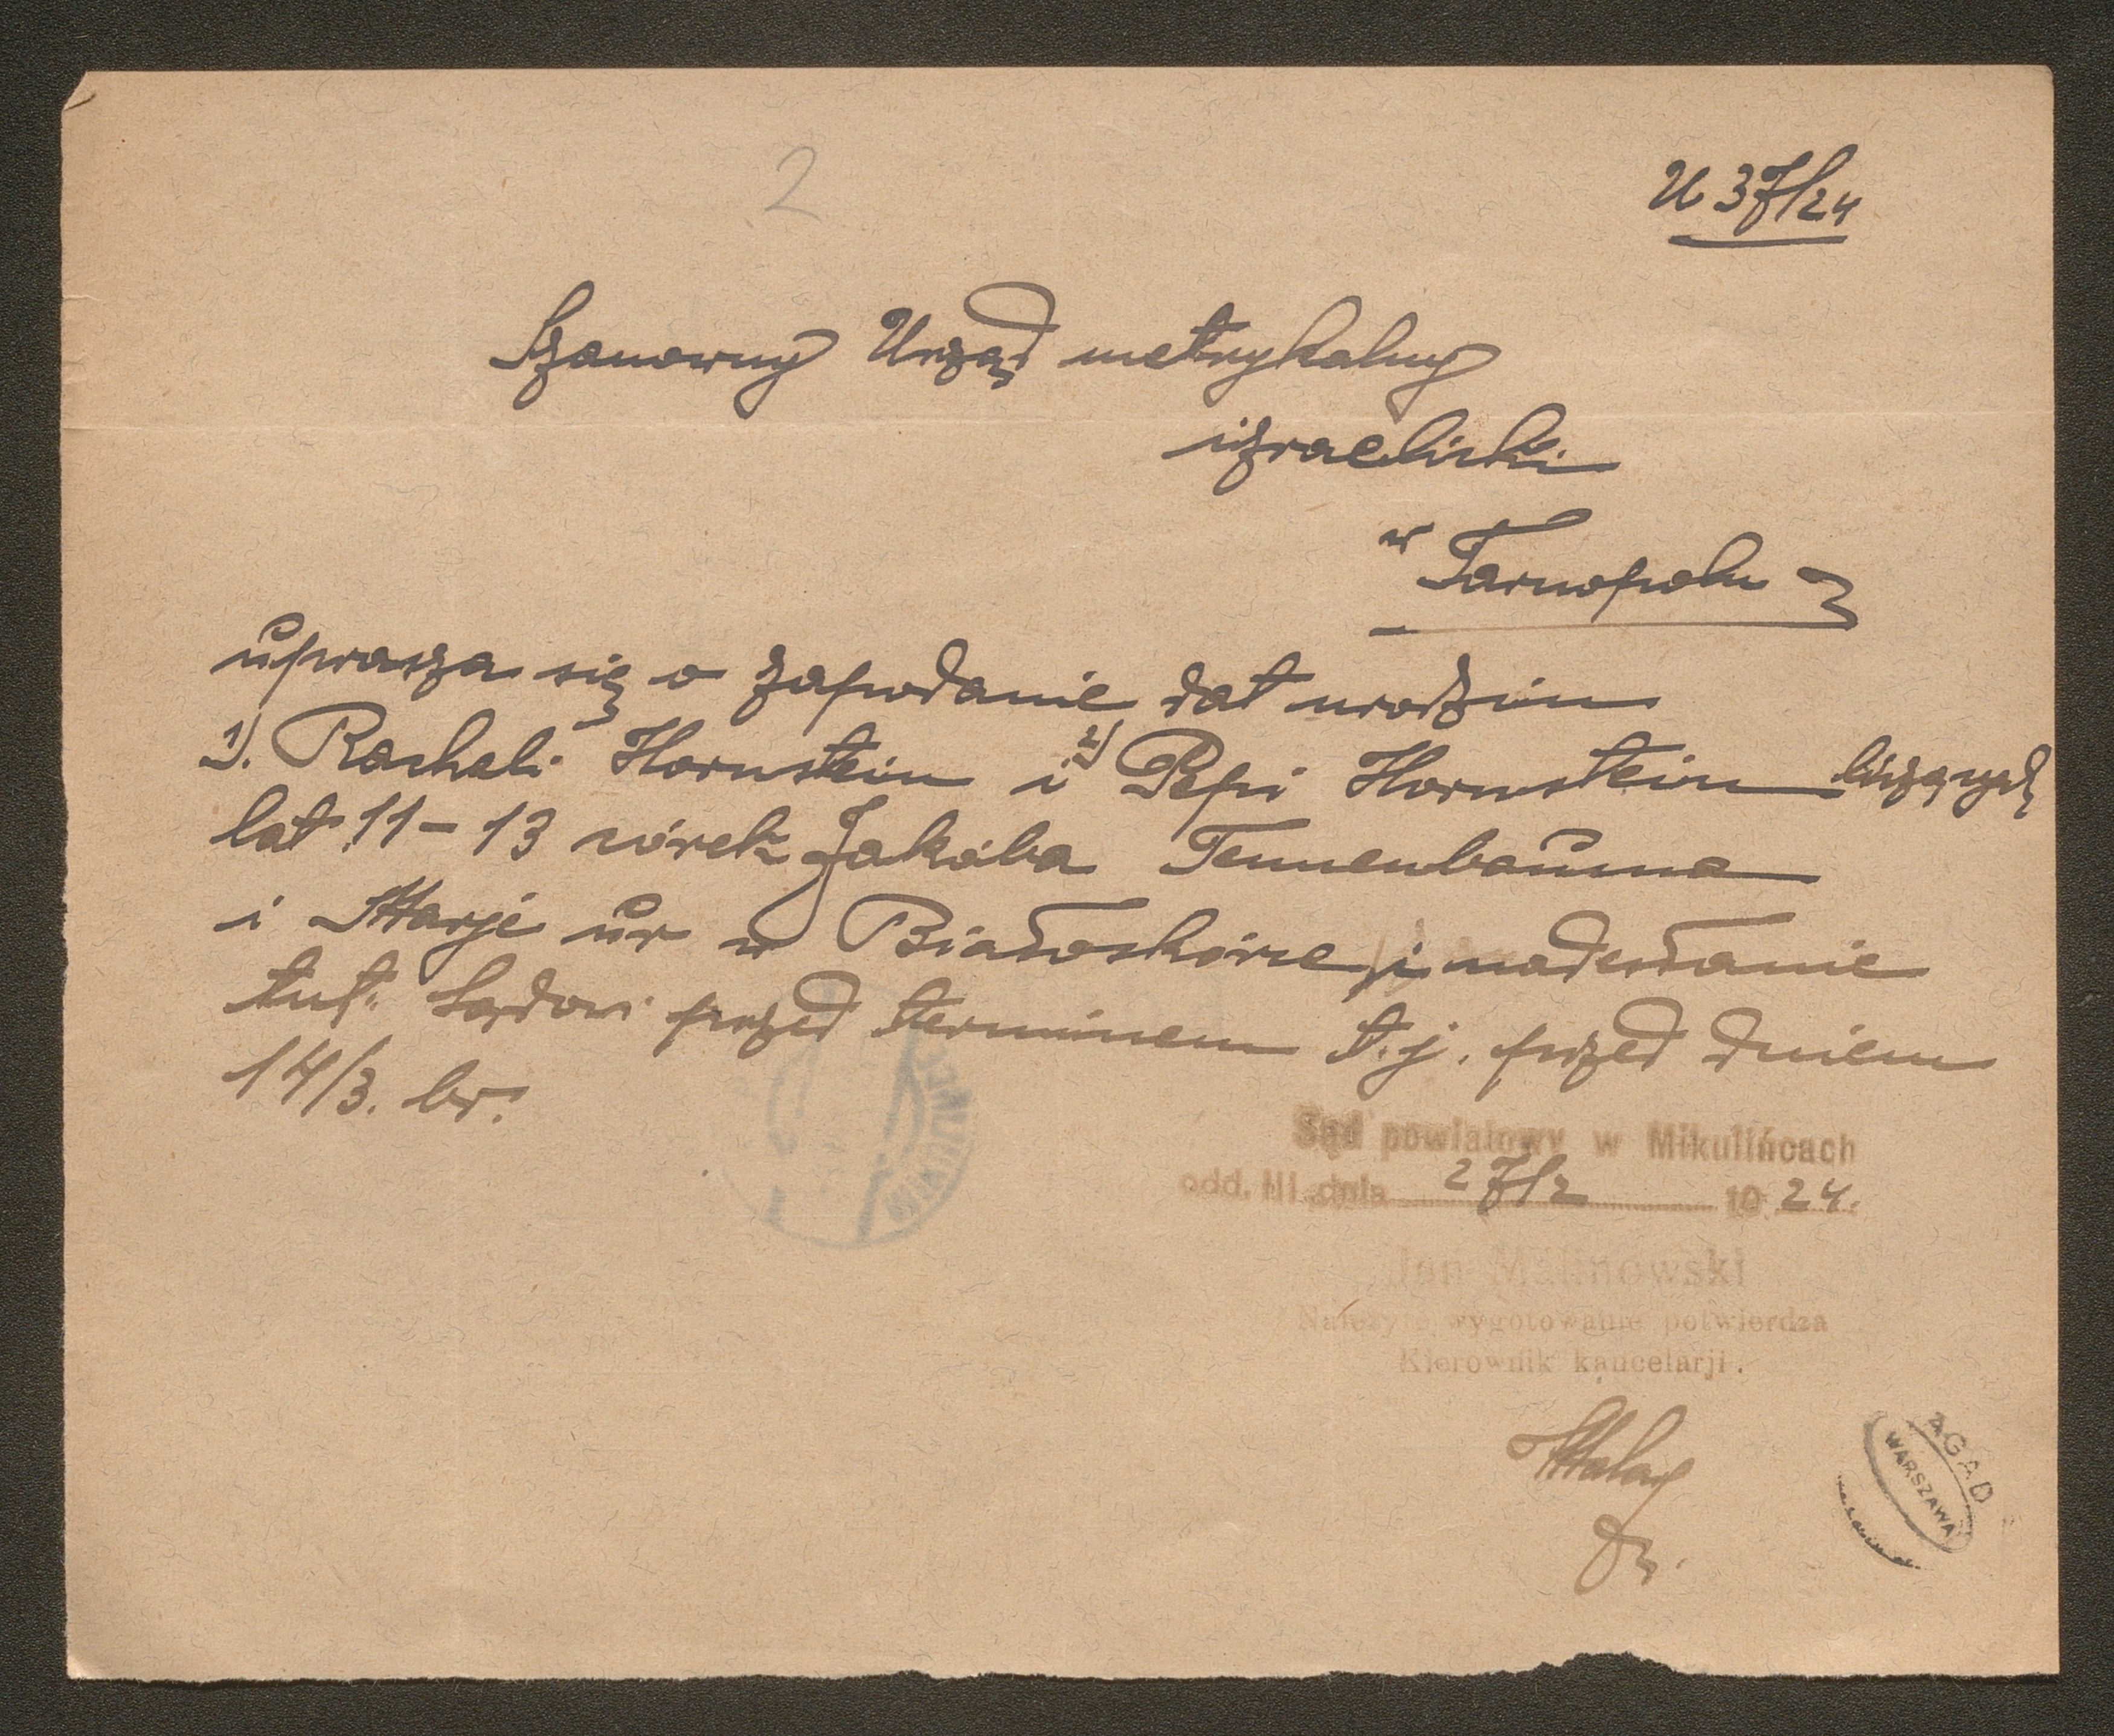 2
U 37/24
Szanowny Urząd metrykalny
izraelicki
w Tarnopolu
uprasza się o zapodanie dat urodzin
1). Racheli Hornstein i 2) Pepi Hornstein liczących
lat 11-13 córek Jakóba Tennenbauma
i Marje ur w Białoskórce i nadesłanie
tut. Sądowi przed terminem t.j. przed dniem
14/3. br.
Sąd powiatowy w Mikulińcach
odd. III. dnia 27/2 19 24.
Jan Malinowski
Należyte wygotowanie potwierdza
Kierownik kancelarji.
AGAD
WARSZAWA